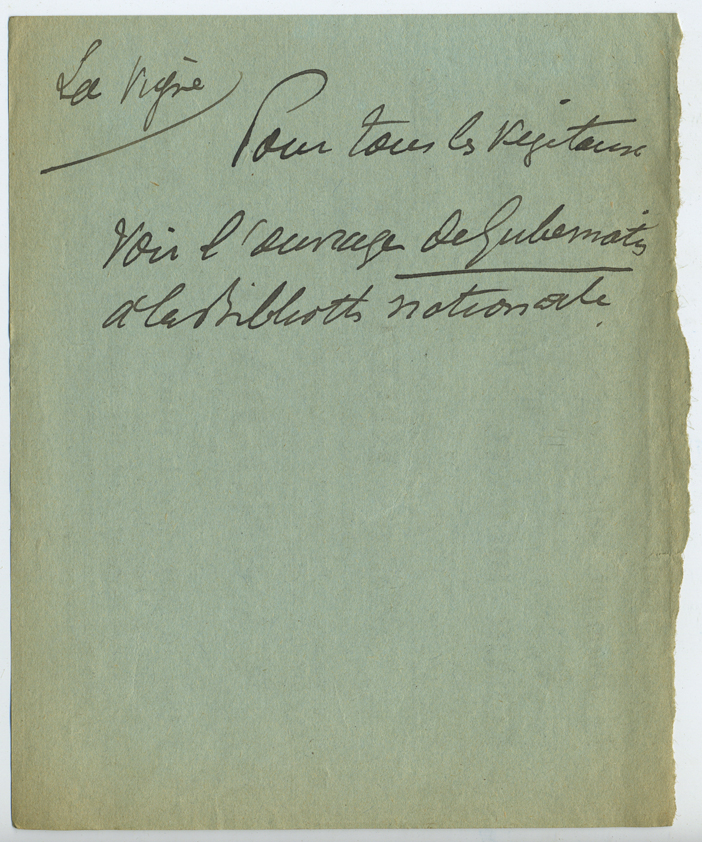 La Vigne
Pour tous les Végétaux
Voir l'ouvrage de Gubernatis
à la Biblioth nationale.